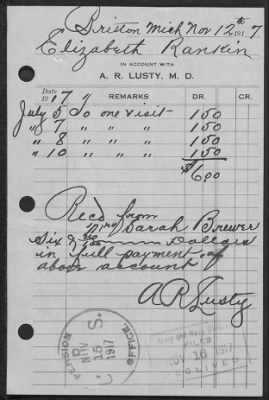 Britton Mich Nov 12th 1917
Elizabeth Rankin
IN ACCOUNT WITH
A. R. LUSTY, M. D.
Date 1917 REMARKS DR. CR.
July 5 To one visit - 150
" 7 " " " 150
" 8 " " " 150
" 10 " " " 150
$6.00
Recd from
Mrs Sarah Brewer
Six & Dollars
in full payment of
above account
A R Lusty
PENSION OFFICE
U. S.
NOV
15
1917
FILED
NOV 16 1917
CIVIL DIV.